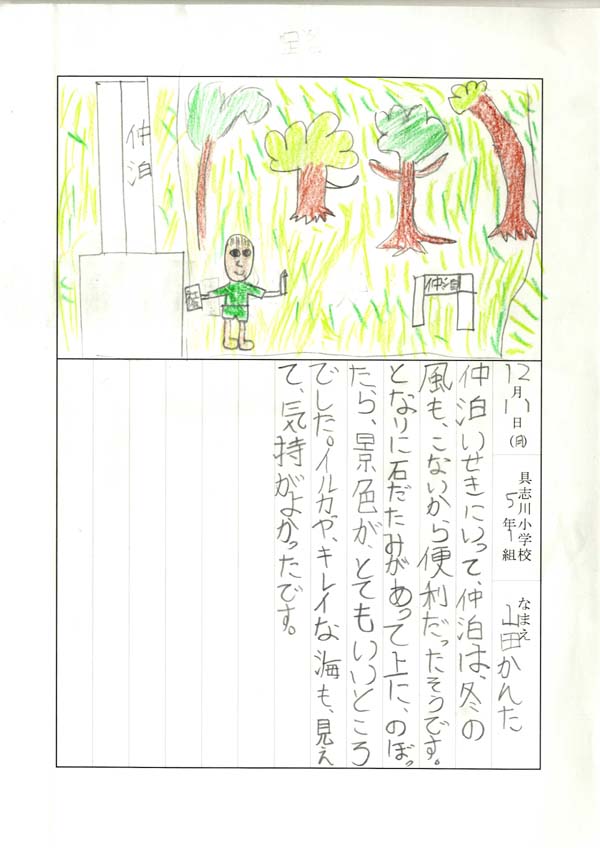 仲泊
仲泊
12月17日(月)
具志川小学校
5年1組
なまえ
山田かんた
仲泊いせきにいって、仲泊は、冬の
風も、こないから便利だったそうです。
となりに石だたみがあって上に、のぼっ
たら、景色が、とてもいいところ
でした。イルカや、キレイな海も、見え
て、気持がよかったです。